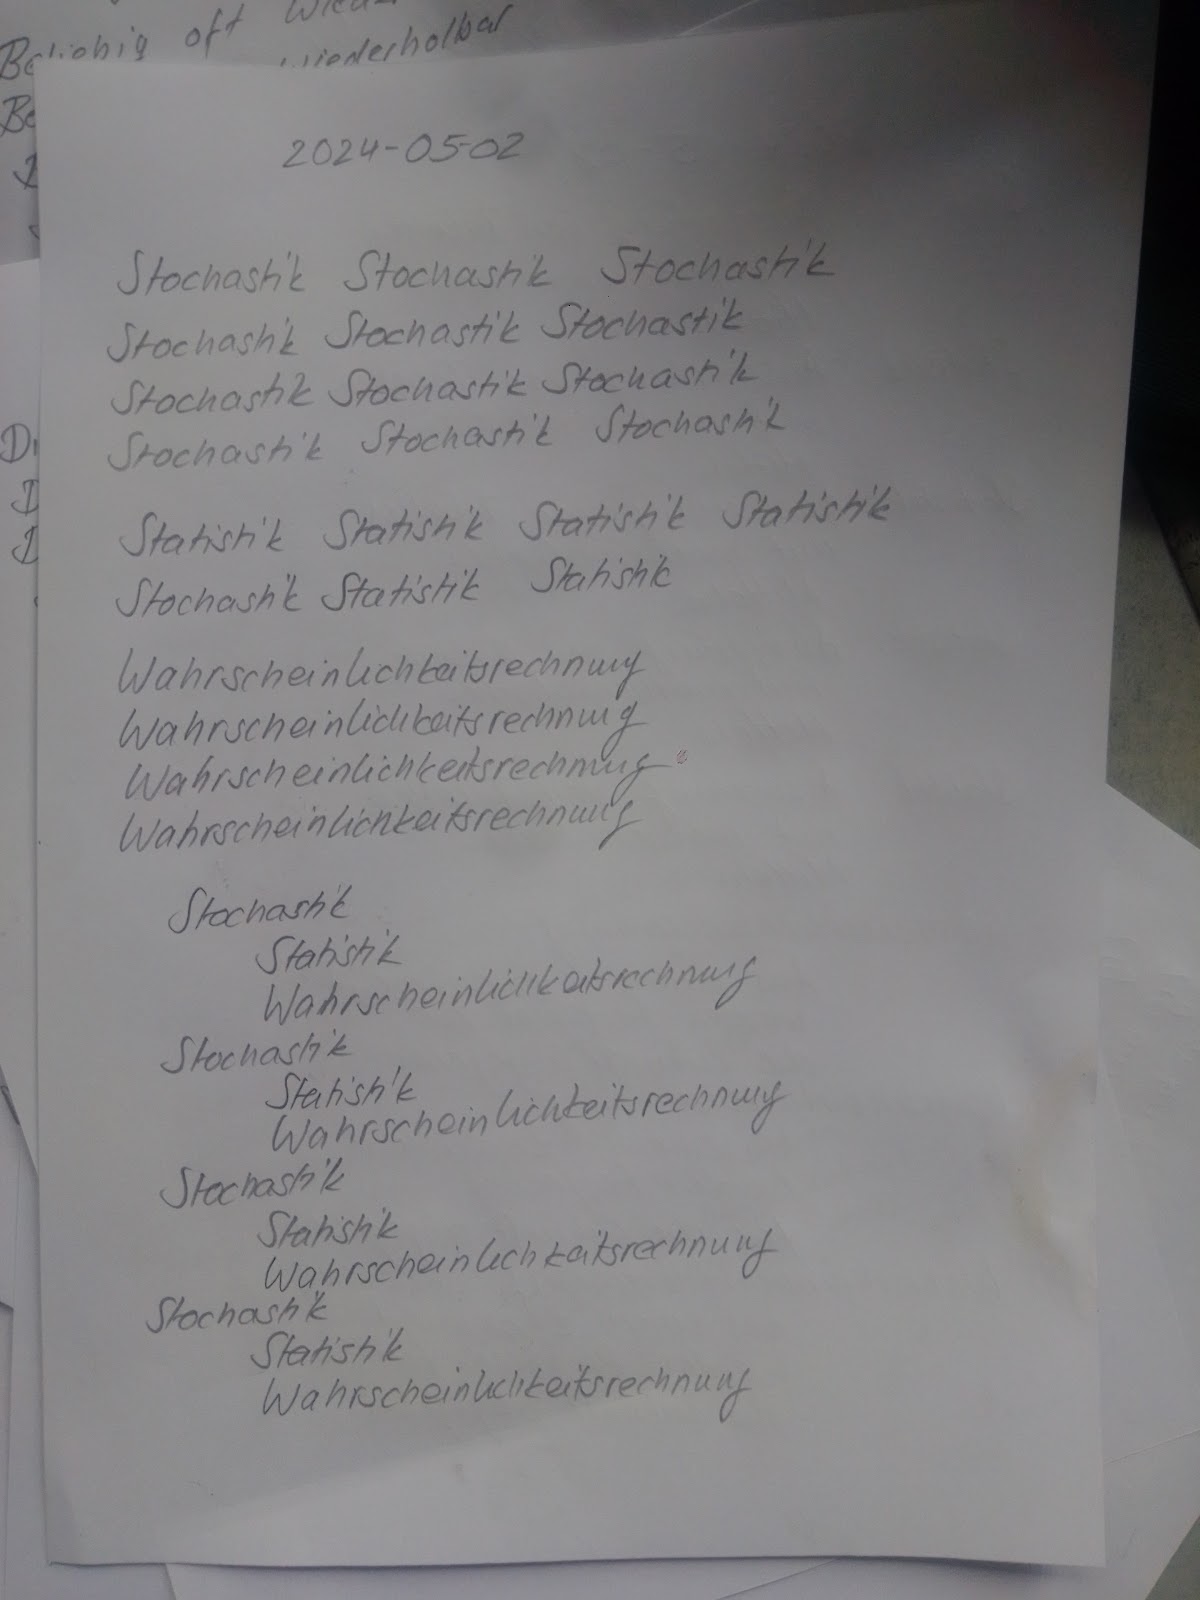 oft
wiederholbar
2024-05-02
Stochastik Stochastik Stochastik
Stochastik Stochastik Stochastik
Stochastik Stochastik Stochastik
Stochastik Stochastik Stochastik
Statistik Statistik Statistik Statistik
Stochastik Statistik Statistik
Wahrscheinlichkeitsrechnung
Wahrscheinlichkeitsrechnung
Wahrscheinlichkeitsrechnung
Wahrscheinlichkeitsrechnung
Stochastik
Statistik
Wahrscheinlichkeitsrechnung
Stochastik
Statistik
Wahrscheinlichkeitsrechnung
Stochastik
Statistik
Wahrscheinlichkeitsrechnung
Stochastik
Statistik
Wahrscheinlichkeitsrechnung